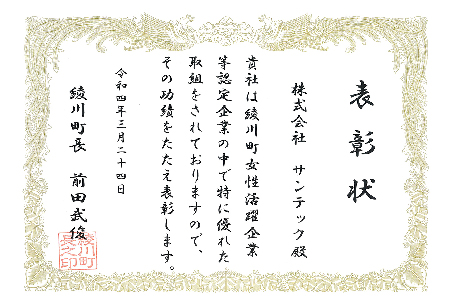 表彰状
株式会社 サンテック殿
貴社は綾川町女性活躍企業
等認定企業の中で特に優れた
取組をされておりますので、
その功績をたたえ表彰します。
令和四年三月二十四日
綾川町長 前田武俊
綾川町
長之印